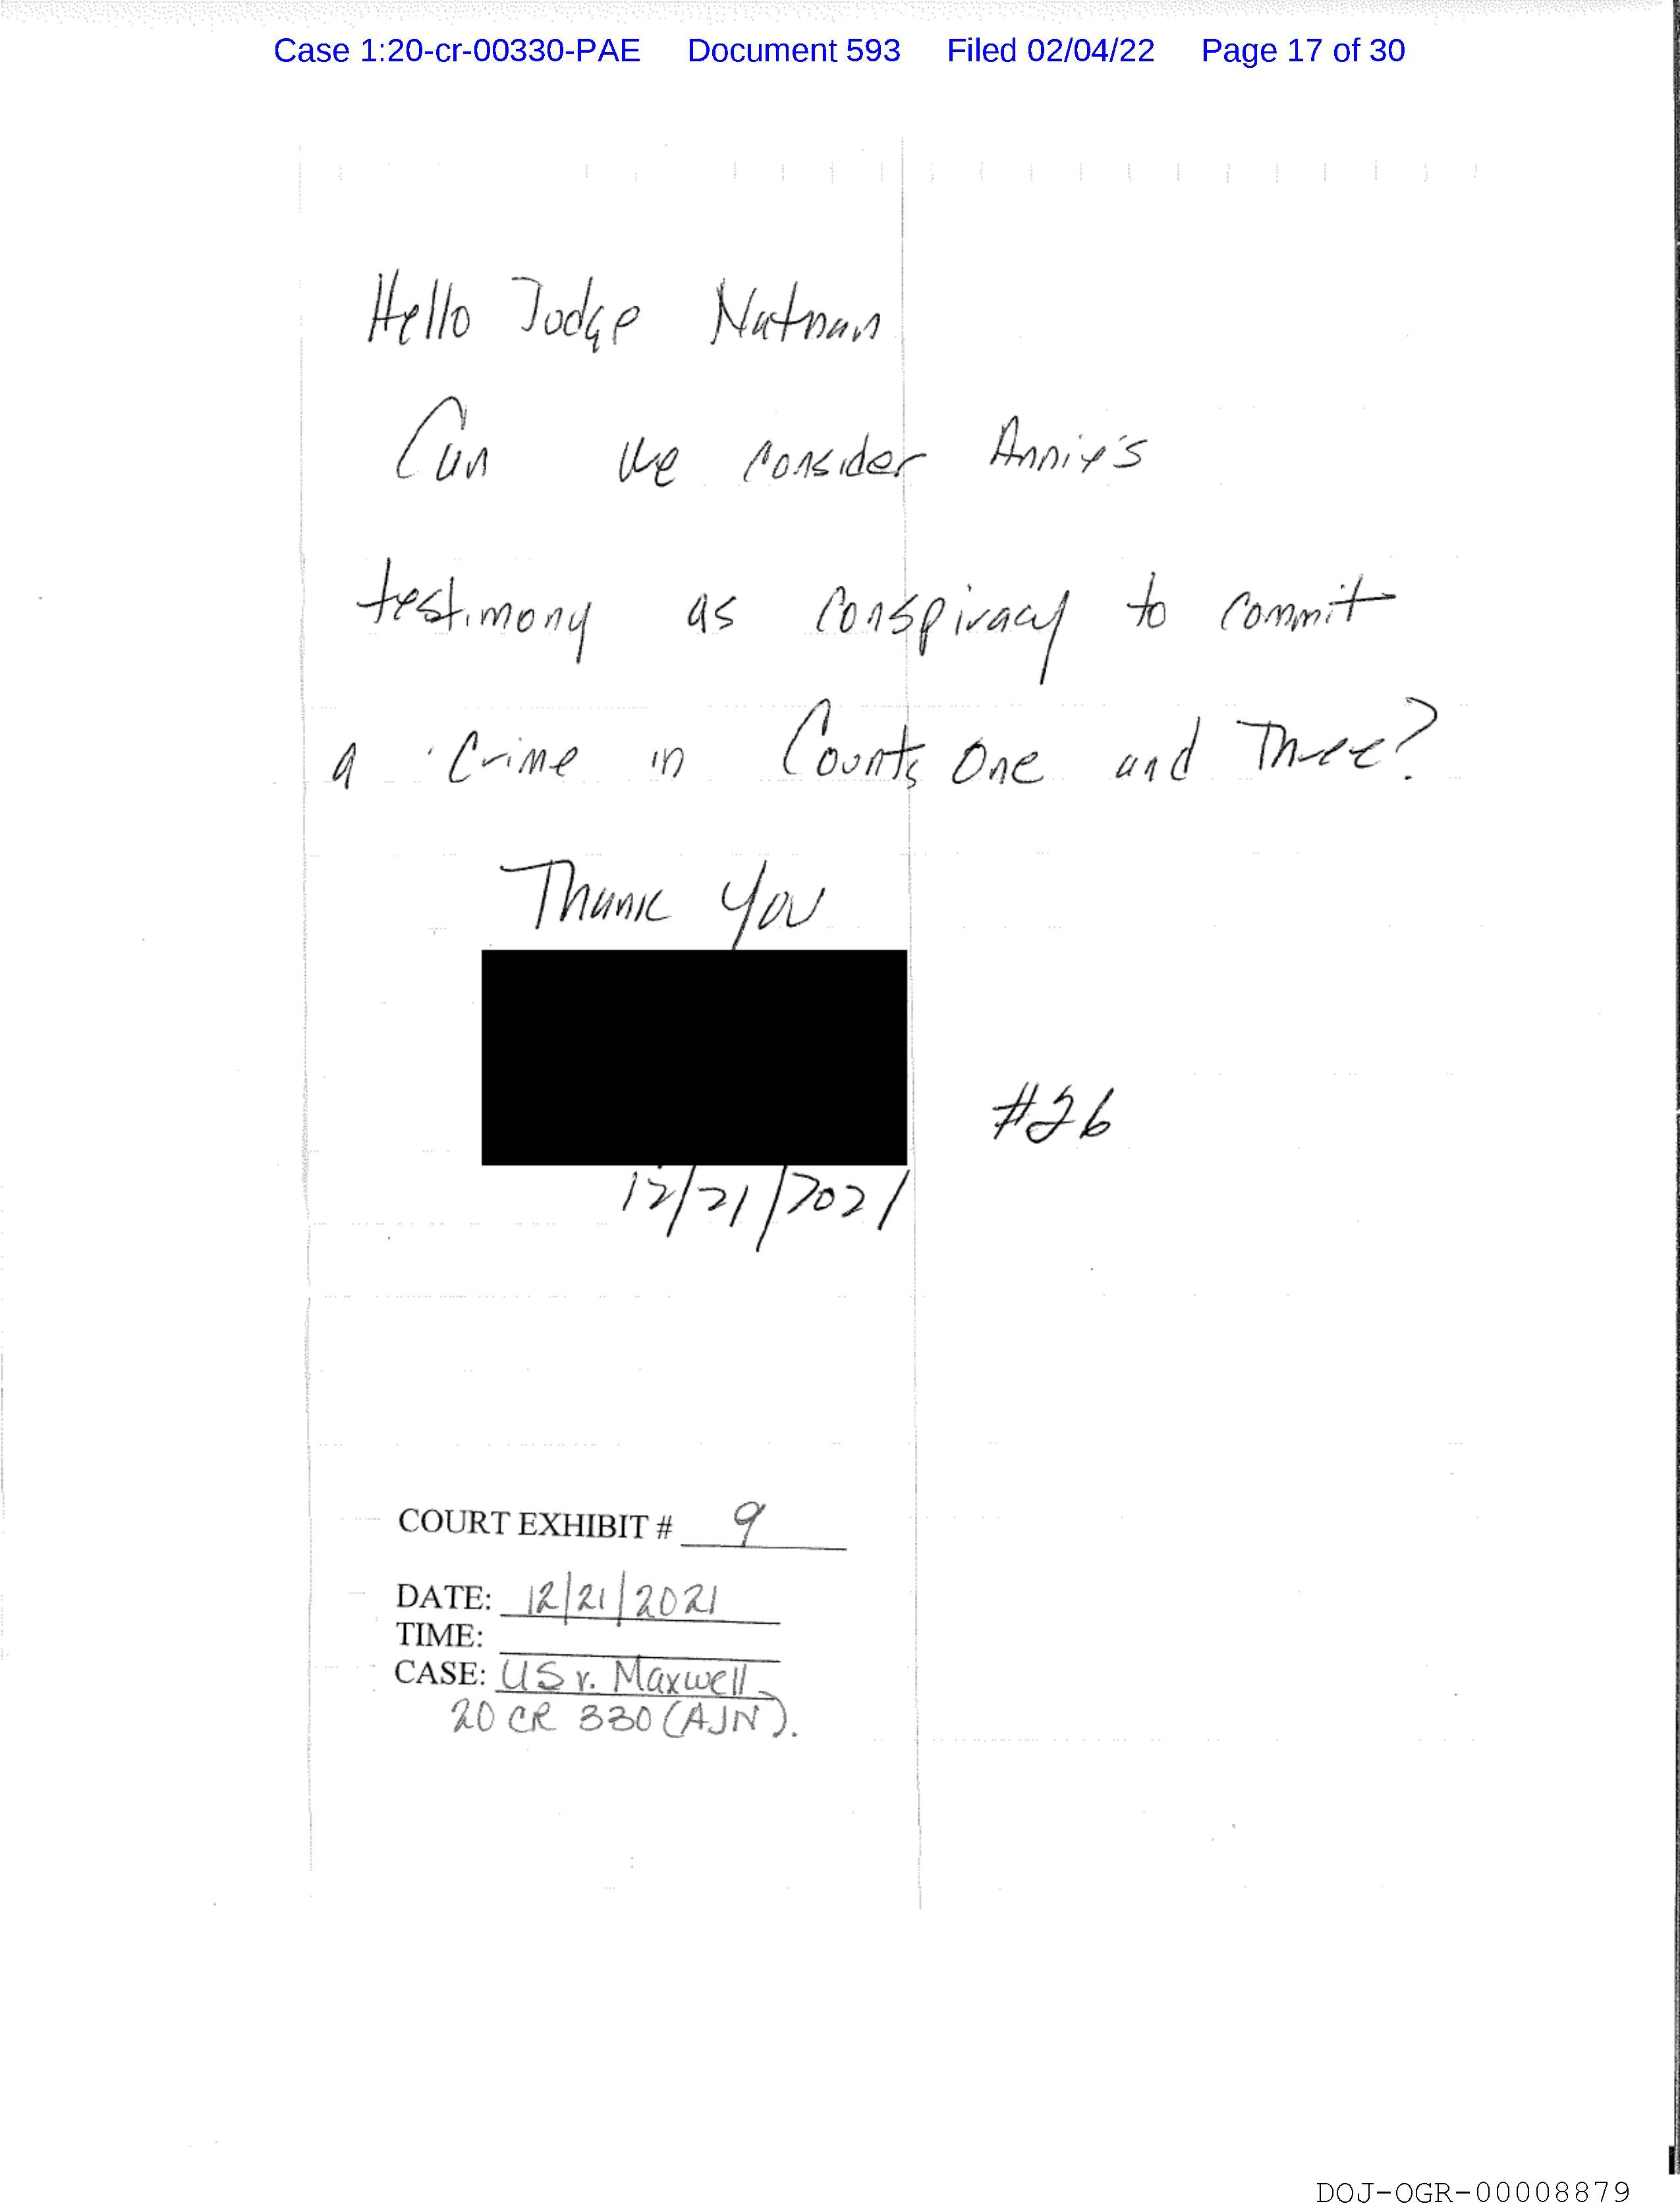 Case 1:20-cr-00330-PAE Document 593 Filed 02/04/22 Page 17 of 30
Hello Judge Nathan
Can we consider Annie's
testimony as conspiracy to commit
a crime in Counts One and Three?
Thank you
#26
12/21/2021
COURT EXHIBIT # 9
DATE: 12/21/2021
TIME:
CASE: US v. Maxwell
20 CR 330 (AJN).
DOJ-OGR-00008879